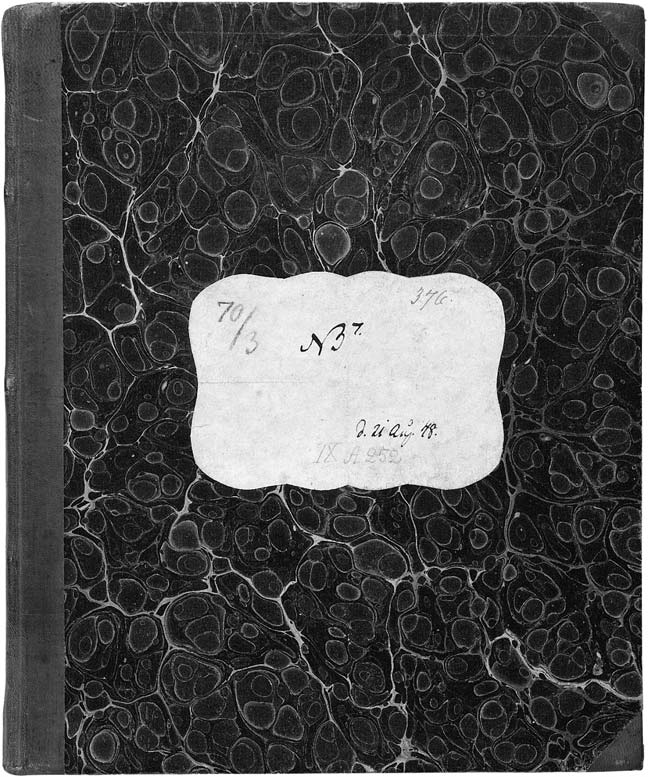 70/3
376.
NB⁷.
d. 21 Aug. 48.
IX A 252